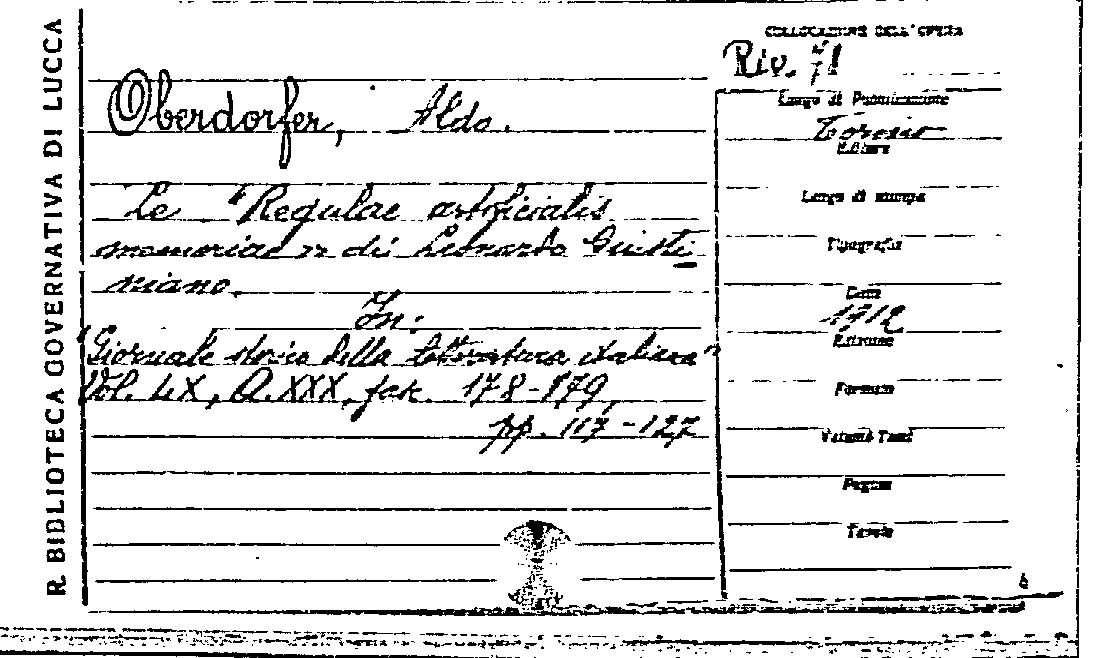 R. BIBLIOTECA GOVERNATIVA DI LUCCA
COLLOCAZIONE DELL'OPERA
Riv. 71
Oberdorfer, Aldo.
Le "Regulae artificialis
memoriae" di Leonardo Giusti
niano.
In:
"Giornale storico della letteratura italiana"
Vol. LX, A. XXX, fasc. 178-179,
pp. 117-127
Luogo di Pubblicazione
Torino
Editore
Luogo di stampa
Tipografia
Data
1912
Edizione
Formato
Volumi Tomi
Pagine
Tavole
6